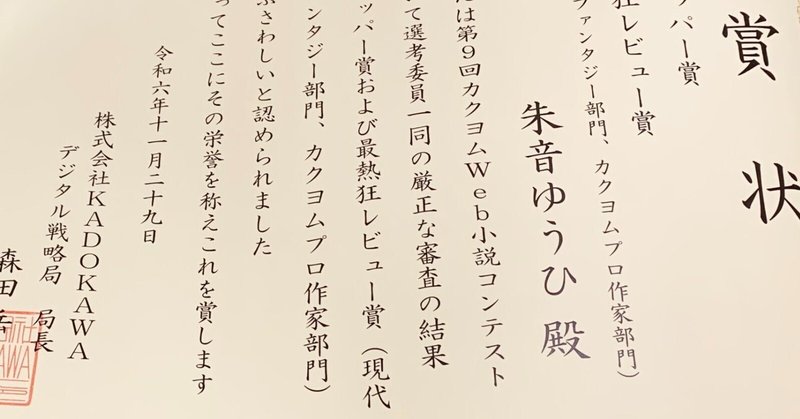 賞状
ッパー賞
狂レビュー賞
ファンタジー部門、カクヨムプロ作家部門)
朱音ゆうひ 殿
は第9回カクヨムWeb小説コンテスト
て選考委員一同の厳正な審査の結果
ッパー賞および最熱狂レビュー賞(現代
ンタジー部門、カクヨムプロ作家部門)
ふさわしいと認められました
ってここにその栄誉を称えこれを賞します
令和六年十一月二十九日
株式会社KADOKAWA
デジタル戦略局 局長
森田